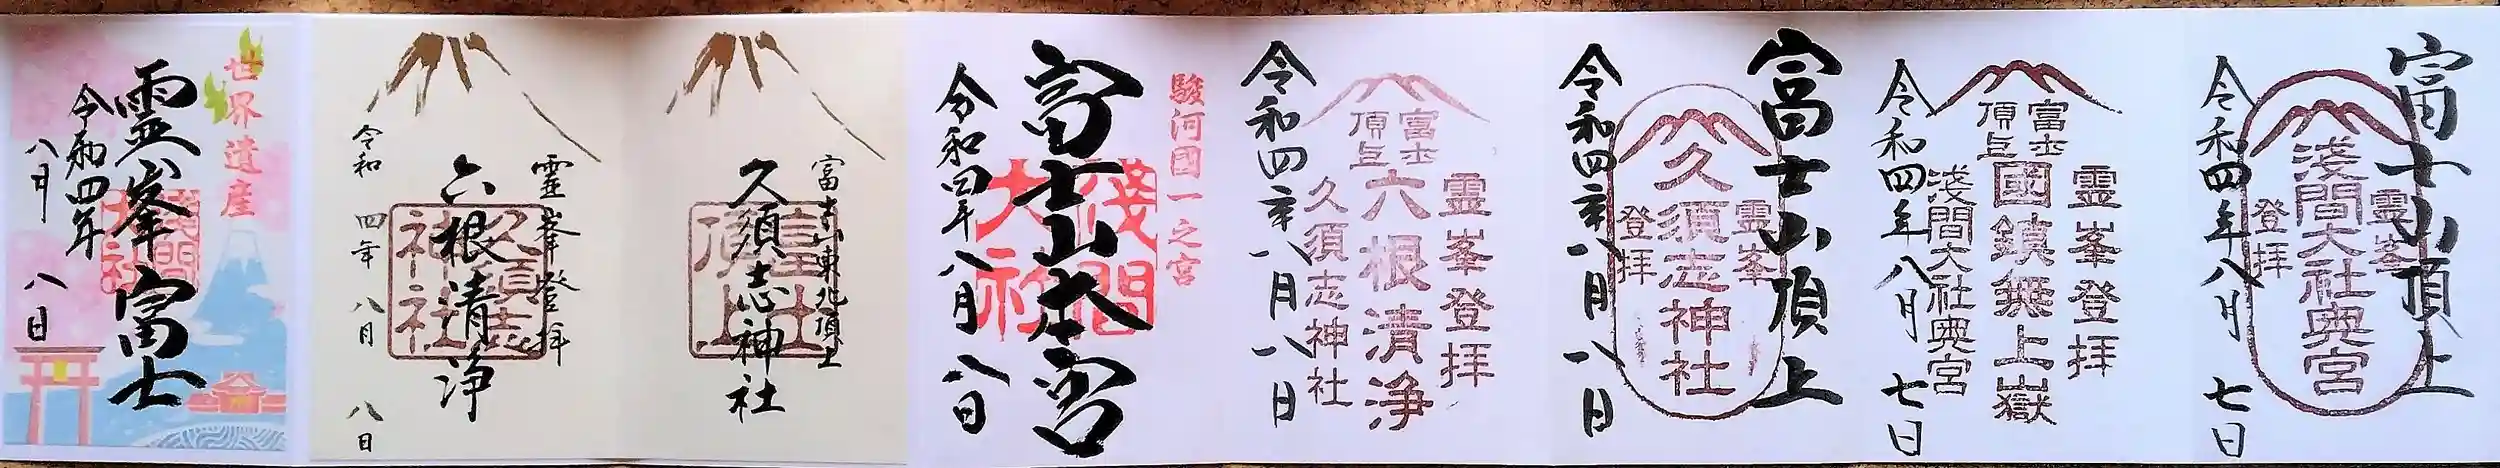 富士山頂上
霊峯
浅間大社奥宮
登拝
令和四年八月七日
霊峯登拝
富士
頂上
國鎮無上嶽
浅間大社奥宮
令和四年八月七日
富士山頂上
霊峯
久須志神社
登拝
令和四年八月八日
霊峯登拝
富士
頂上
六根清浄
久須志神社
令和四年八月八日
駿河國一之宮
富士山本宮
浅間
大社
令和四年八月八日
富士山東北頂上
久須志神社
富士
頂上
霊峯登拝
六根清浄
久須志
神社
令和四年八月八日
世界遺産
霊峯富士
浅間
大社
令和四年
八月八日